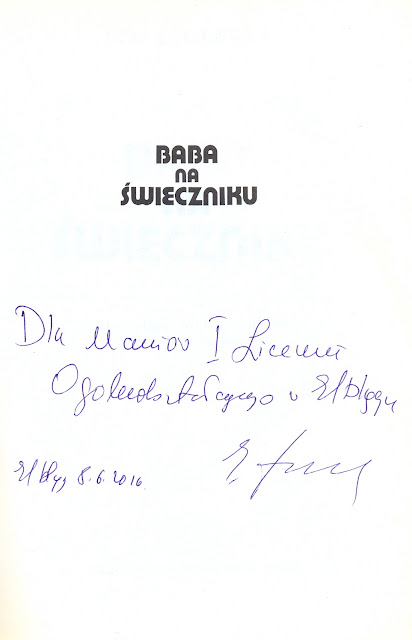 BABA
NA
ŚWIECZNIKU
Dla Uczniów I Liceum
Ogólnokształcącego w Elblągu
Elbląg 8.6.2016